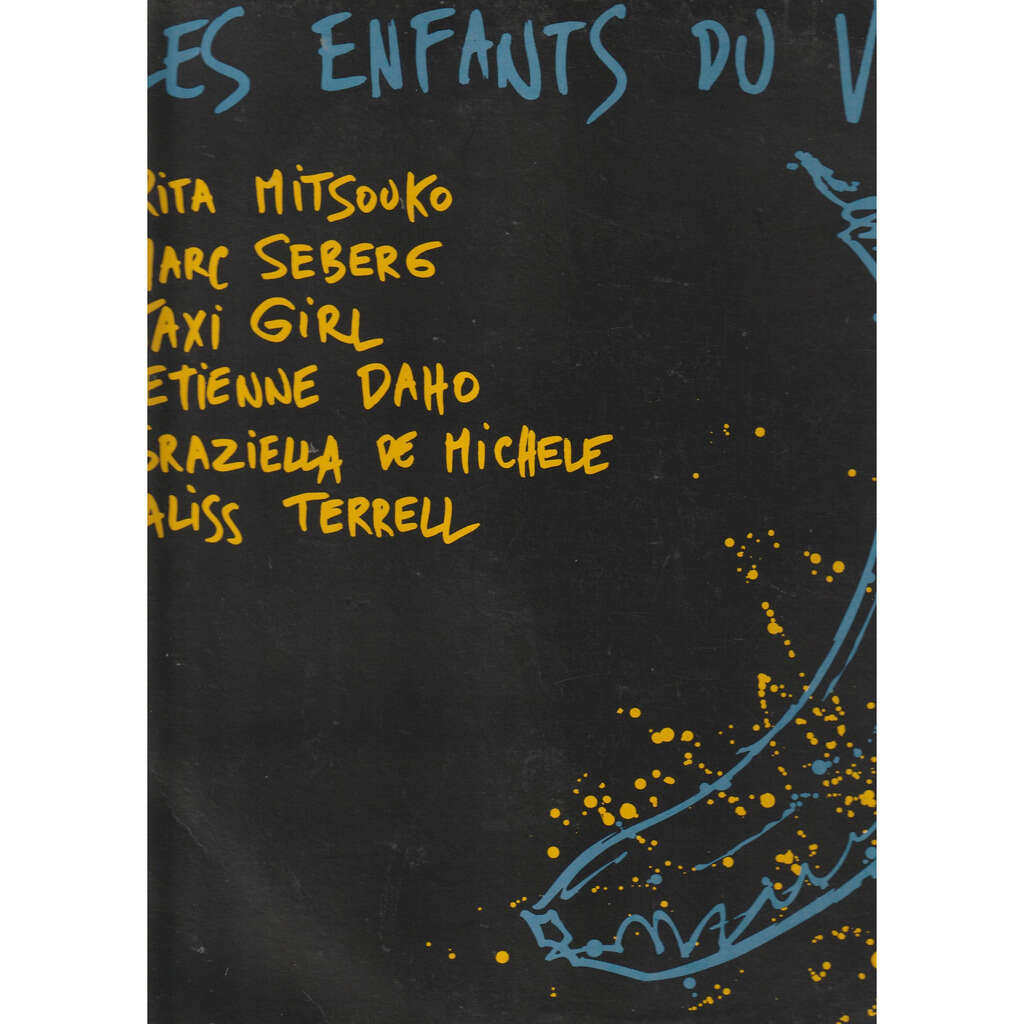 LES ENFANTS DU V
RITA MITSOUKO
MARC SEBERG
TAXI GiRL
ETIENNE DAHO
GRAZIELLA DE MICHELE
ALISS TERRELL